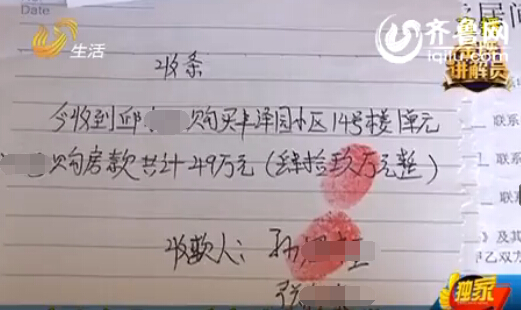 Date
生活
齐鲁网
iqilu.com
讲解员
收条
今收到邱 购买丰泽园小区14号楼1单元
购房款共计49万元(肆拾玖万元整)
收款人:孙
张
联系
联
联系
》及其
甲乙双方
独家